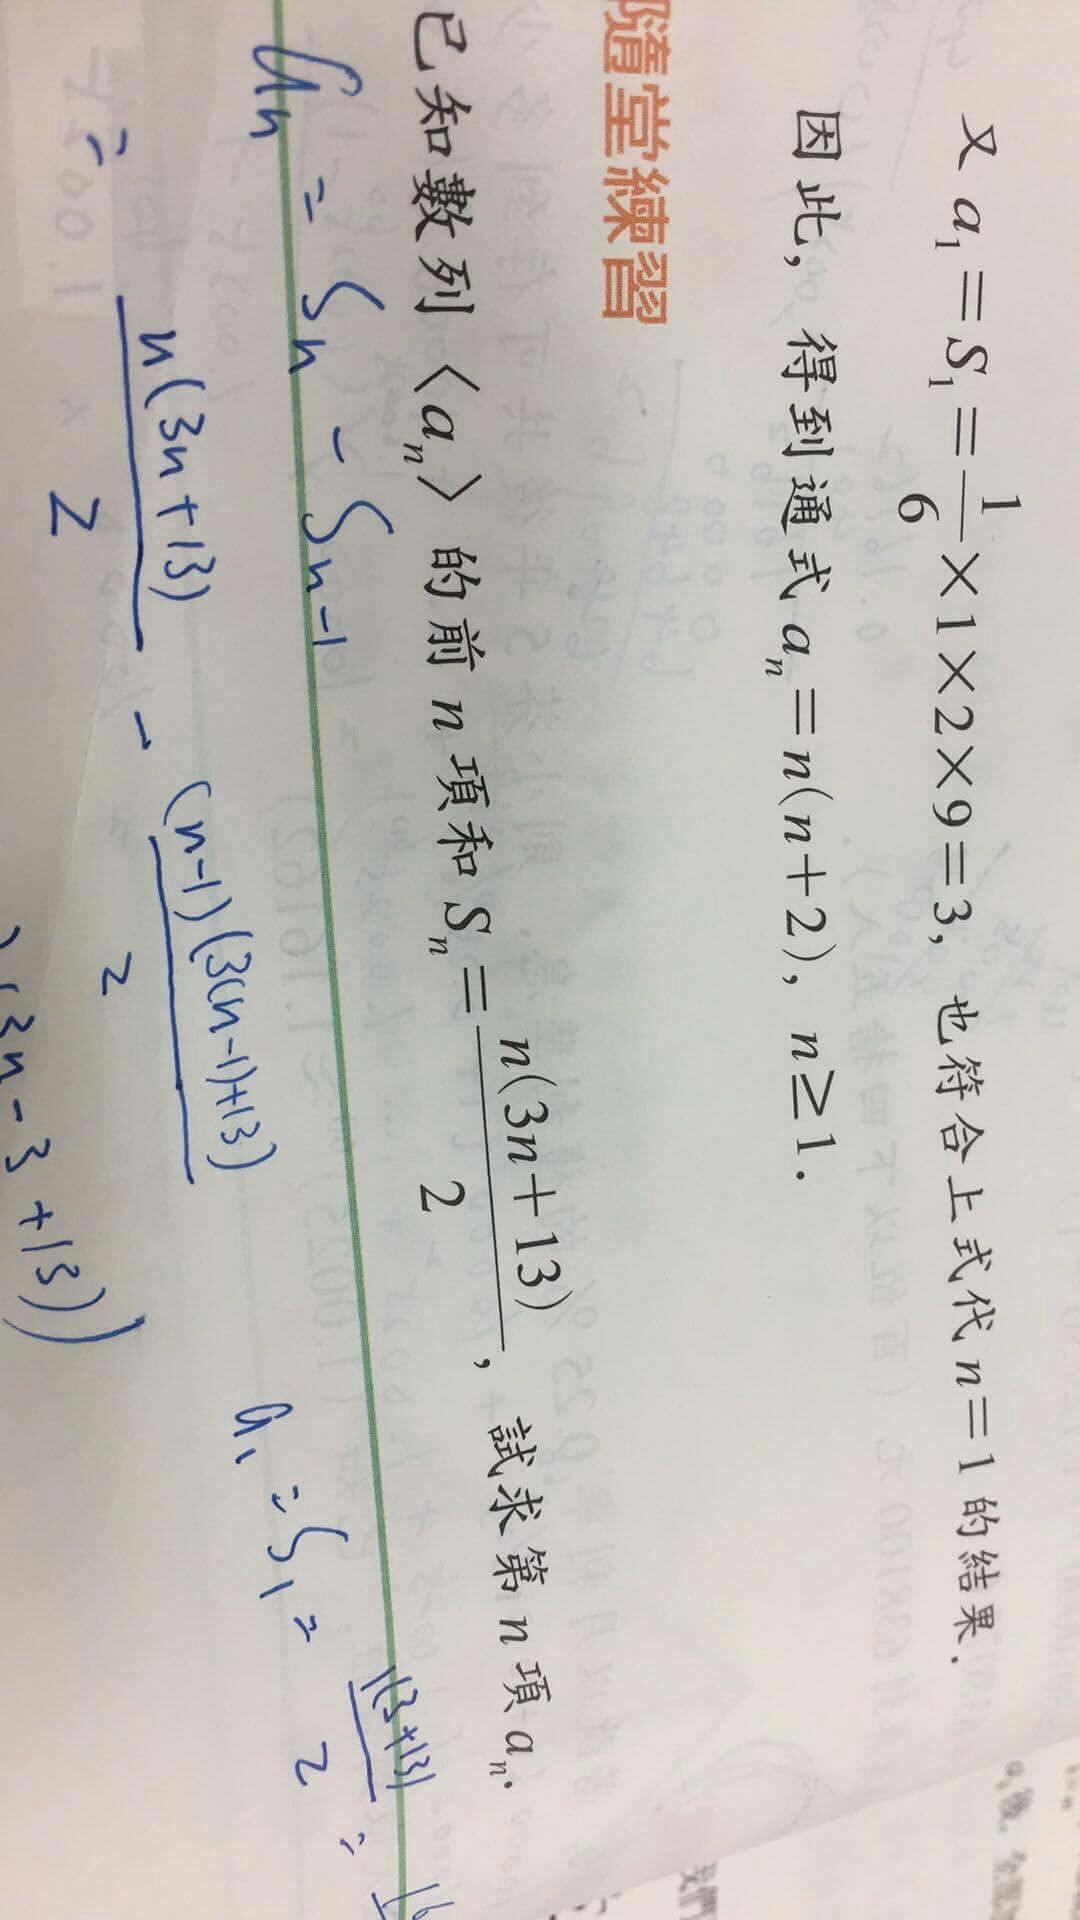 又 a₁＝S₁＝1/6×1×2×9＝3，也符合上式代 n＝1 的結果．
因此，得到通式 aₙ＝n(n＋2)，n≥1．
隨堂練習
已知數列〈aₙ〉的前 n 項和 Sₙ＝n(3n＋13)/2，試求第 n 項 aₙ．
aₙ = Sₙ - Sₙ₋₁
= n(3n+13)/2 - (n-1)(3(n-1)+13)/2
a₁ = S₁ = 1(3+13)/2 = 16
(3n-3+13))
我們